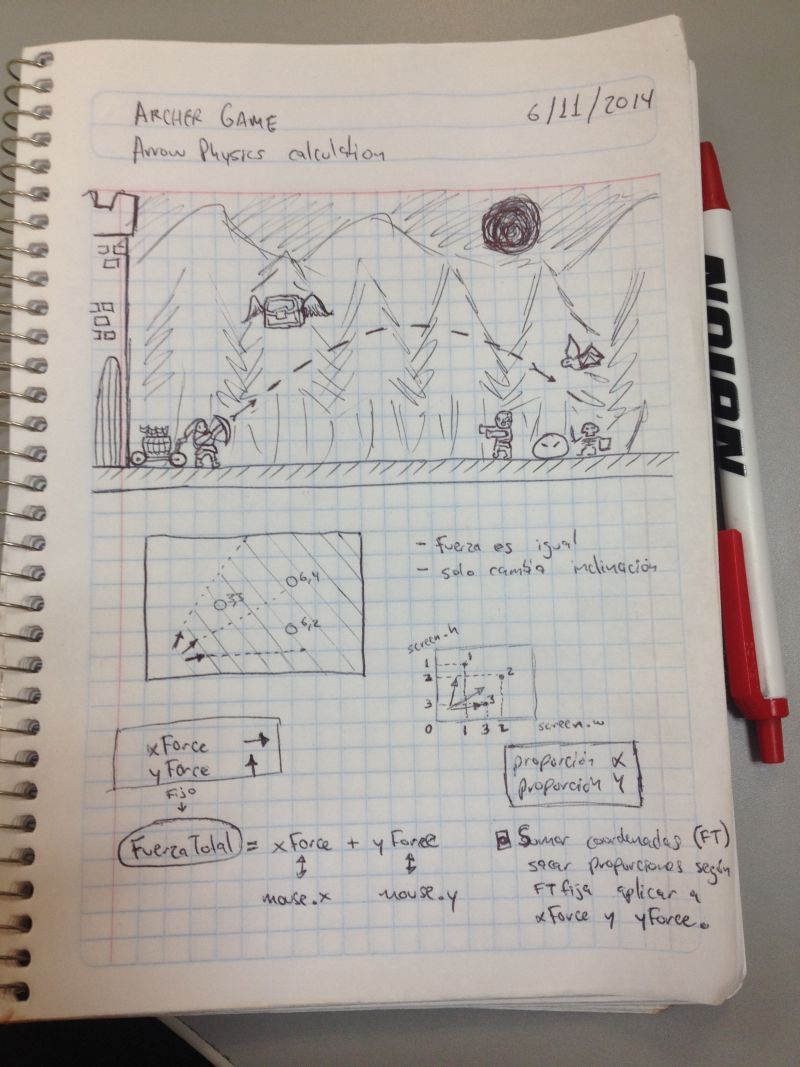 ARCHER GAME
6/11/2014
Arrow Physics calculation
- fuerza es igual
- solo cambia inclinación
3,5
6,4
6,2
screen.h
1
2
3
0
1 3 2
1
2
3
screen.w
xForce
yForce
Fijo
proporción X
proporción Y
FuerzaTotal = xForce + yForce
mouse.x mouse.y
Sumar coordenadas (FT)
sacar proporciones según
FT fija aplicar a
xForce y yForce.